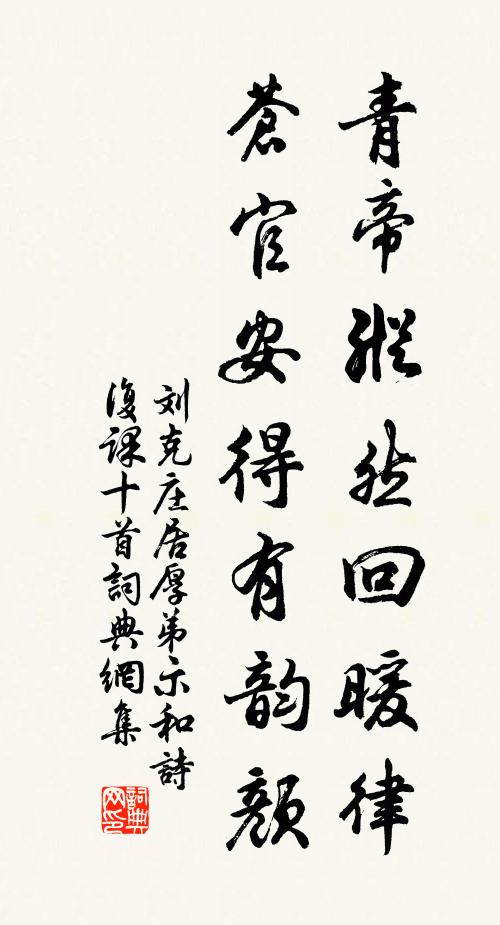 青帝縱然回暖律
蒼官安得有韵顏
刘克庄居厚弟示和詩
復課十首詞典網集
詞典网印